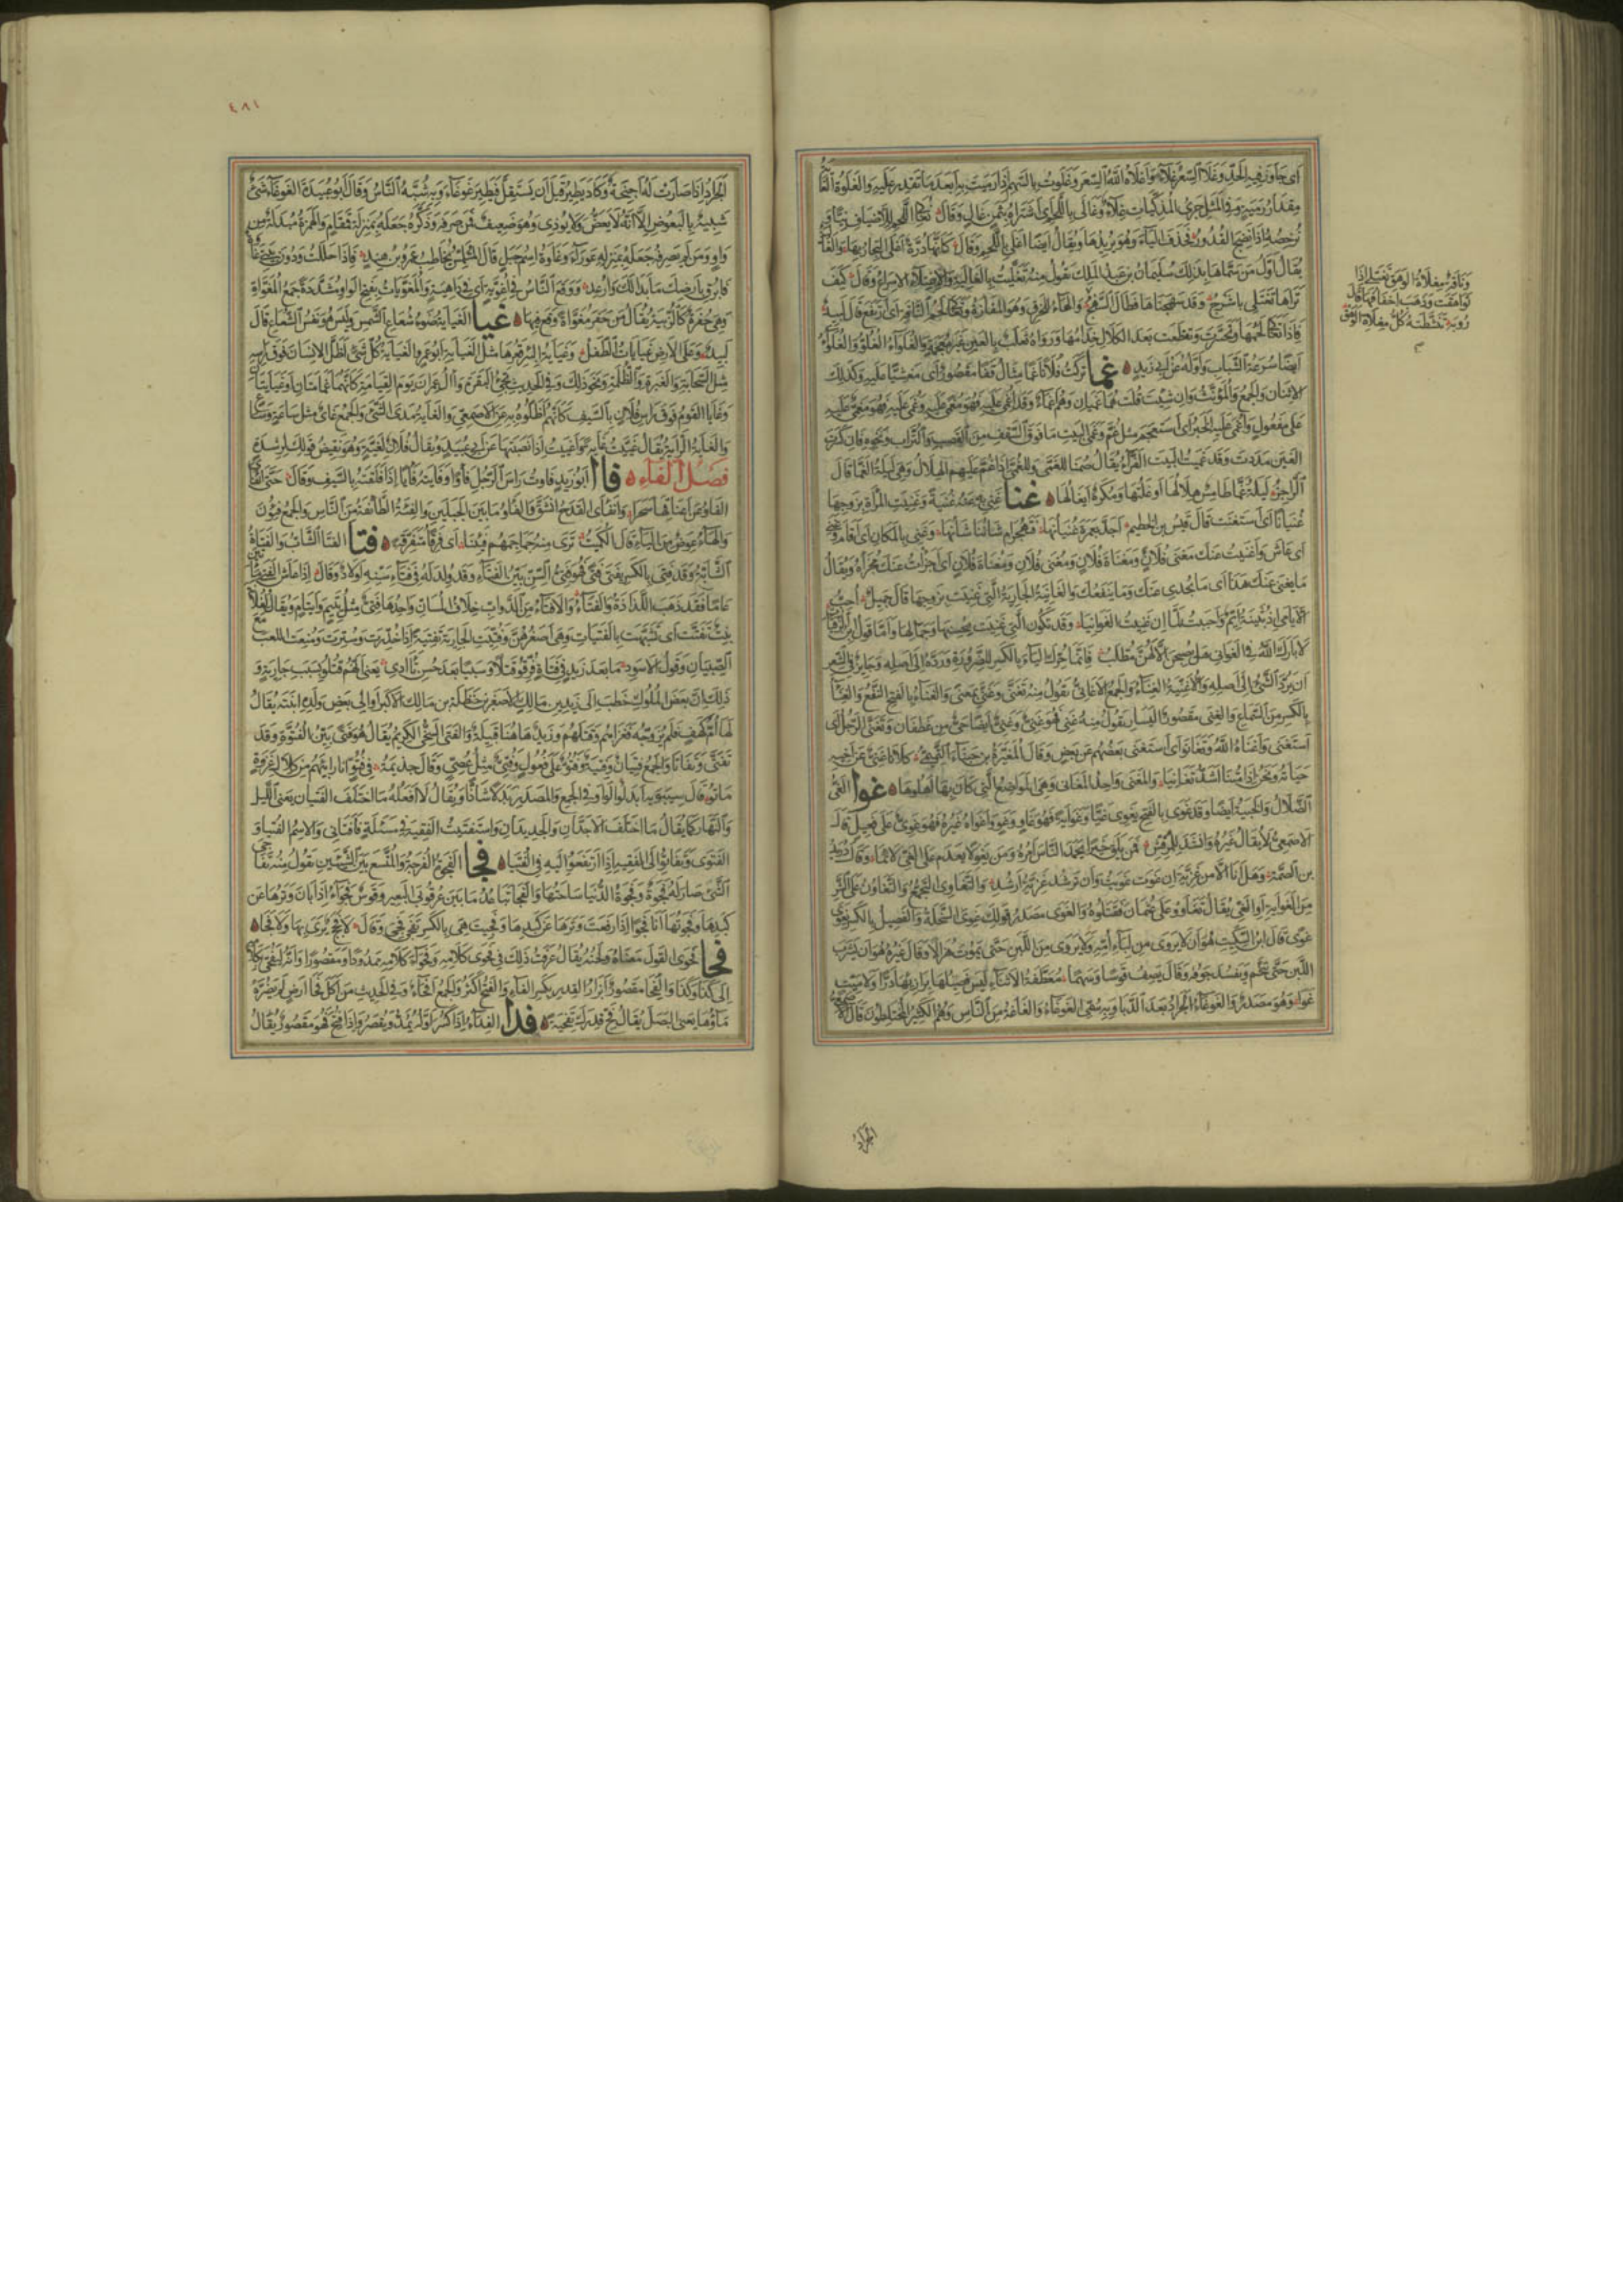 أي جاوز فيه الحد وغلا السعر غلاء وأغلاه الله السعر وغلوت بالسهم إذا رميت به أبعد ما تقدر عليه والغلوة الغاية
مقدار رمية وفي المثل جري المذكيات غلاء وغالى باللحم أي اشتراه بثمن غال وقال نغالي اللحم للأضياف نيا و
نرخصه إذا نضج القدور فحذف الباء وهو يريدها ويقال أيضا أغلى باللحم وقال كأنها درة أغلى التجار بها والغا
يقال أول من سماها بذلك سليمان بن عبد الملك تقول منه تغليت بالغالية والإغتلاء الإسراع وقال كيف
تراها تغتلي يا شرج وقد سهجناها فطال السهج
فإذا تغالى لحمها وتحسرت وتقطعت بعد الكلال خدامها ورواه ثعلب بالعين غير معجمة والغلواء الغلو والغلواء
أيضا سرعة الشباب وأوله عن أبي زيد غما تركت فلانا غما مثال قفا مقصور أي مغشيا عليه وكذلك
الاثنان والجمع والمؤنث وإن شئت قلت هما غميان وهم أغماء وقد أغمي عليه فهو مغمى عليه وغمي عليه فهو مغمي عليه
على مفعول وأغمي عليه الخبر أي استعجم مثل غم وغمى البيت ما فوق السقف من القصب والتراب ونحوه فإن كسرت
الغين مددت وقد غميت البيت الفراء يقال صمنا للغمى وللغمى إذا غم عليهم الهلال وهي ليلة الغما قال
الراجز ليلة غمى طامس هلالها أوغلتها ومكره إيغالها غنا غني به عنه غنية وغنيت المرأة بزوجها
غنيانا أي استغنت قال قيس بن الخطيم أجد بعمرة غنيانها فتهجر أم شاننا شانها وغني بالمكان أي أقام وغني
أي عاش وأغنيت عنك مغنى فلان ومغناة فلان ومغنى فلان ومغناة فلان أي أجزأت عنك مجزأه ويقال
ما يغني عنك هذا أي ما يجدي عنك وما ينفعك والغانية الجارية التي غنيت بزوجها قال جميل أحب
الأيامى إذ بثينة أيم وأحببت لما أن غنيت الغوانيا وقد تكون التي غنيت بحسنها وجمالها وأما قول ابن الرقيات
لا بارك الله في الغواني هل يصبحن إلا لهن مطلب فإنما حرك الياء بالكسر للضرورة ورده إلى أصله وجائز في الشعر
أن يرد الشيء إلى أصله والأغنية الغناء والجمع الأغاني تقول منه تغنى وغنى بمعنى والغناء بالفتح النفع والغناء
بالكسر من السماع والغنى مقصور اليسار تقول منه غني فهو غني وغني أيضا حي من غطفان وتغنى الرجل أي
استغنى وأغناه الله وتغانوا أي استغنى بعضهم عن بعض وقال المغيرة بن حبناء التميمي كلانا غني عن أخيه
حياته ونحن إذا متنا أشد تغانيا والمغنى واحد المغاني وهي المواضع التي كان بها أهلوها غوا الغي
الضلال والخيبة أيضا وقد غوى بالفتح يغوي غيا وغواية فهو غاو وغو وأغواه غيره فهو غوي على فعيل قال
الأصمعي لا يقال غيره وأنشد للمرقش فمن يلق خيرا يحمد الناس أمره ومن يغو لا يعدم على الغي لائما وقال دريد
بن الصمة وهل أنا إلا من غزية إن غوت غويت وإن ترشد غزية أرشد والتغاوي التجمع والتعاون على الشر
من الغواية أو الغي يقال تغاووا على عثمان فقتلوه والغوى مصدر قولك غوي السخلة والفصيل بالكسر يغوى
غوى قال ابن السكيت هو أن لا يروى من لبأ أمه ولا يروى من اللبن حتى يموت هزالا وقال غيره هو أن يشرب
اللبن حتى يتخم ويفسد جوفه وقال يصف قوسا وسهما معطفة الأثناء ليس فصيلها برازئها درا ولا ميت
غوى وهو مصدر والغوغاء الجراد بعد الدبا وبه سمي الغوغاء والغاغة من الناس وهم الكثير المختلطون قال
وناقة مغلاة الوهق تغتلي إذا
تواهقت وتذهب أخفافها قال
رؤبة تنشطته كل مغلاة الوهق
م
الجراد
٤٨١
الجراد إذا صارت له أجنحة وكاد يطير قبل أن يستقل فيطير غوغاء وبه شبه الناس وقال أبو عبيدة الغوغاء شيء
شبيه بالبعوض إلا أنه لا يعض ولا يؤذي وهو ضعيف فمن صرفه وذكره جعله بمنزلة قمقام والهمزة مبدلة من
واو ومن لم يصرفه جعله بمنزلة عوراء وغاوة اسم جبل قال المتلمس يخاطب عمرو بن هند فإذا حللت ودون بيتي غاوة
فابرق بأرضك ما بدا لك وارعد ووقع الناس في أغوية أي في داهية والمغويات بفتح الواو مشددة جمع المغواة
وهي حفرة كالزبية يقال من حفر مغواة وقع فيها غيا الغياية ضوء شعاع الشمس وليس هو نفس الشعاع قال
لبيد وعلى الأرض غيايات الطفل وغياية البئر قعرها مثل الغيابة أبو عمرو الغياية كل شيء أظل الإنسان فوق رأسه
مثل السحابة والغبرة والظلمة ونحو ذلك وفي الحديث تجيء البقرة وآل عمران يوم القيامة كأنهما غمامتان أو غيايتان
وغايا القوم فوق رأس فلان بالسيف كأنهم أظلوه به عن الأصمعي والغاية مدى الشيء والجمع غاي مثل ساعة وساع
والغاية الراية يقال غييت غاية وأغييت إذا نصبتها عن أبي عبيد ويقال فلان لغية وهو نقيض قولك لرشدة
فصل الفاء فأا أبو زيد فأوت رأس الرجل فأوا وفأيته فأيا إذا فلقته بالسيف وقال حتى انفأى
الفأو عن أعناقها سحرا وانفأى القدح انشق والفأو ما بين الجبلين والفئة الطائفة من الناس والجمع فئون
والهاء عوض من الياء قال الكميت ترى منه جماجمهم فئينا أي فرقا متفرقة فتا الفتا الشاب والفتاة
الشابة وقد فتي بالكسر يفتى فتى فهو فتي السن بين الفتاء وقد ولد له في فتاء سنه أولاد وقال إذا عاش الفتى مائتين
عاما فقد ذهب اللذاذة والفتاء والأفتاء من الدواب خلاف المسان واحدها فتي مثل يتيم وأيتام ويقال لفلان
بنت تفتت أي تشبهت بالفتيات وهي أصغرهن وفتيت الجارية تفتية إذا خدرت وسترت ومنعت اللعب مع
الصبيان وقول الأسود ما بعد زيد في فتاة فرقوا قتلا وسبيا بعد حسن تآدي يعني أنهم قتلوا بسبب جارية و
ذلك أن بعض الملوك خطب إلى زيد بن مالك الأصغر بن حنظلة بن مالك الأكبر أو إلى بعض ولده ابنته يقال
لها أم كهف فلم يزوجه فغزاهم وقتلهم وزيد هاهنا قبيلة والفتى السخي الكريم يقال هو فتى بين الفتوة وقد
تفتى وتفاتا والجمع فتيان وفتية وفتو على فعول وفتي مثل عصي وقال جذيمة في فتو أنا رابئهم من كلال غزوة
ماتوا قال سيبويه أبدلوا الواو في الجمع والمصدر بدلا شاذا ويقال لا أفعله ما اختلف الفتيان يعني الليل
والنهار كما يقال ما اختلف الأجدان والجديدان واستفتيت الفقيه في مسئلة فأفتاني والاسم الفتيا و
الفتوى وتفاتوا إلى الفقيه إذا ارتفعوا إليه في الفتيا فجا الفجوة الفرجة والمتسع بين الشيئين تقول منه تفاجى
الشيء صار له فجوة وفجوة الدنيا ساحتها والفجا تباعد ما بين عرقوبي البعير وقوس فجواء إذا بان وترها عن
كبدها وفجوتها أنا فجوا إذا رفعت وترها عن كبدها وفجيت هي بالكسر تفجى فجى وقال لا فحج يرى بها ولا فجا
فحا فحوى القول معناه ولحنه يقال عرفت ذلك في فحوى كلامه وفحواء كلامه ممدودا ومقصورا وإنه ليفحي بكلامه
إلى كذا وكذا والفحا مقصور أبزار القدر بكسر الفاء والفتح أكثر والجمع أفحاء وفي الحديث من أكل فحا أرض لم يضره
ماؤها يعني البصل يقال فح قدرك تفحية فدا الفداء إذا كسر أوله يمد ويقصر وإذا فتح فهو مقصور يقال